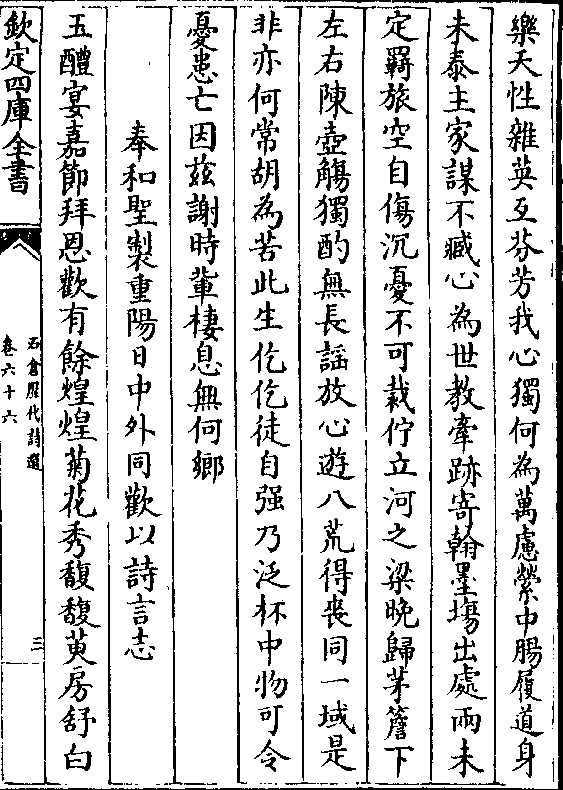 樂天性雜英互芬芳我心獨何為萬慮縈中腸履道身
未泰主家謀不臧心為世教牽跡寄翰墨塲出處兩未
定羇旅空自傷沉憂不可裁佇立河之梁晚歸茅簷下
左右陳壺觴獨酌無長謡放心遊八荒得喪同一域是
非亦何常胡為苦此生矻矻徒自强乃泛杯中物可令
憂患亡因茲謝時輩棲息無何鄉
奉和聖製重陽日中外同歡以詩言志
玉醴宴嘉節拜恩歡有餘煌煌菊花秀馥馥萸房舒白
欽定四庫全書
石倉歷代詩選
卷六十六
三